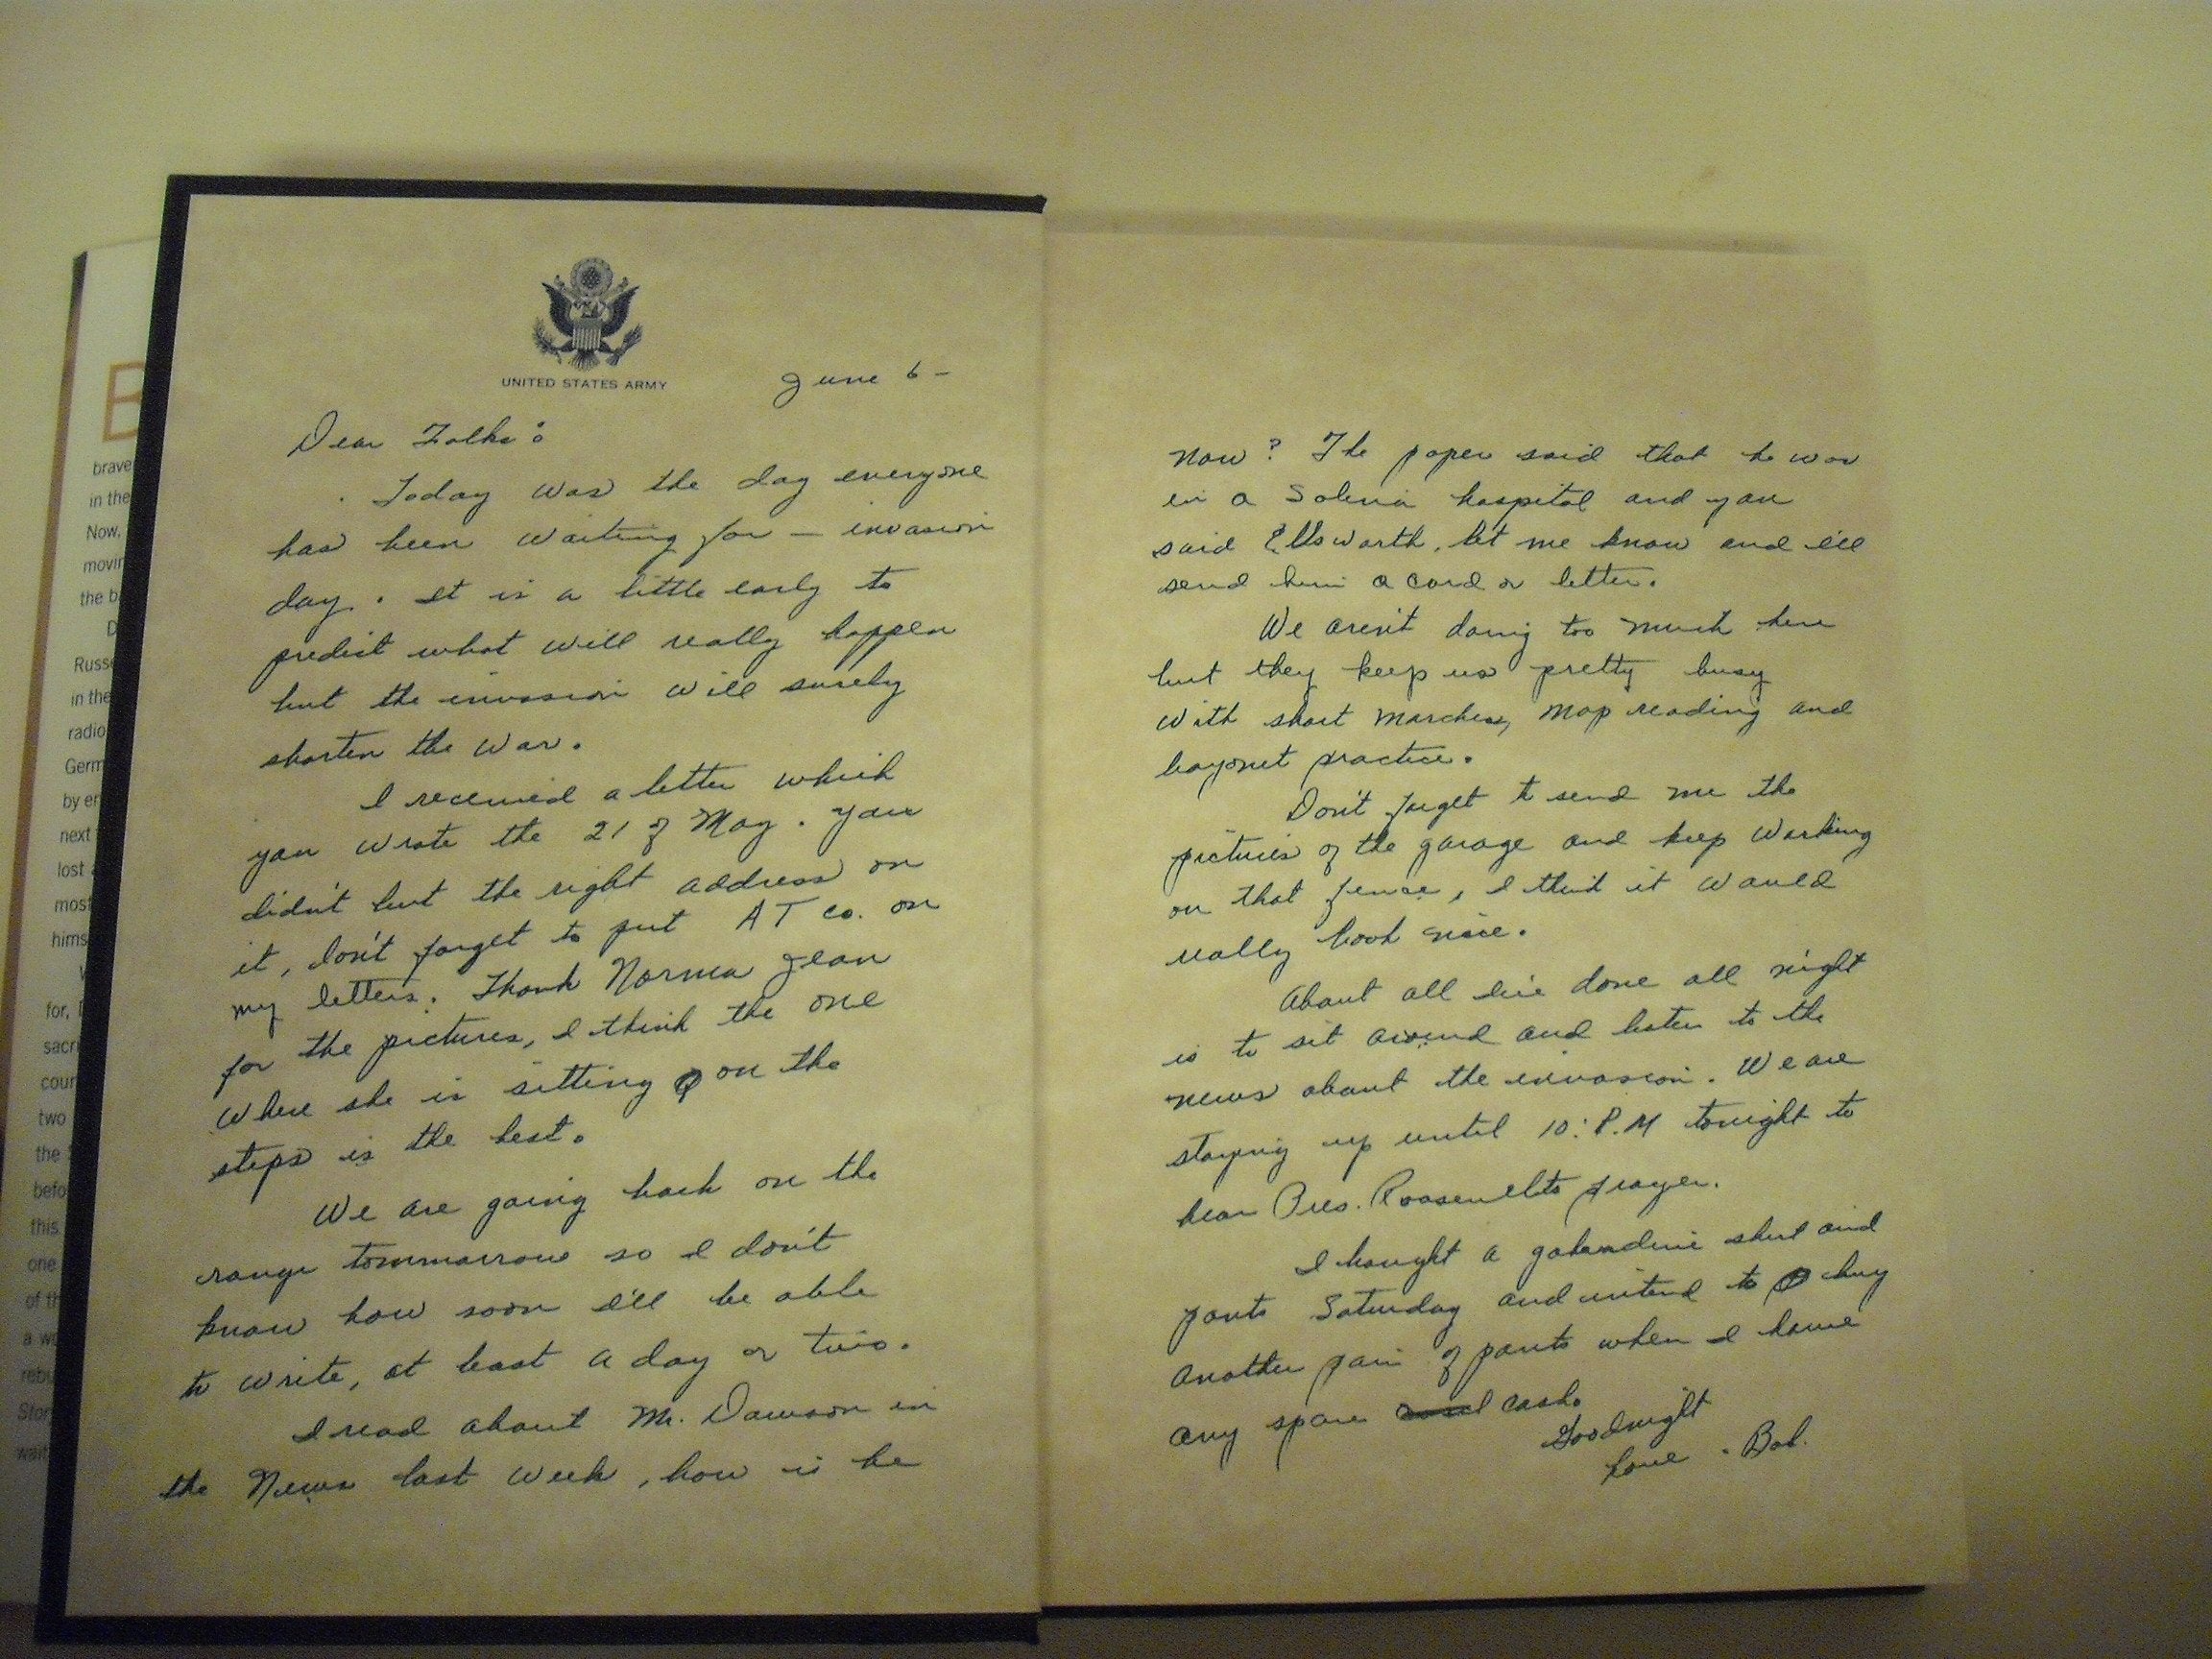 E
brave
in the
Now,
movin
the b
D
Russ
in the
radio
Germ
by en
next
lost
most
hims
for,
sacri
cour
two
the
befo
this
one
of th
a wo
rebu
Stor
wait
UNITED STATES ARMY
June 6 –
Dear Folks:
Today was the day everyone
has been waiting for – invasion
day. It is a little early to
predict what will really happen
but the invasion will surely
shorten the war.
I received a letter which
you wrote the 21 of May. You
didn't but the right address on
it, don't forget to put AT co. on
my letters. Thank Norma Jean
for the pictures, I think the one
where she is sitting on the
steps is the best.
We are going back on the
range tommorrow so I don't
know how soon I'll be able
to write, at least a day or two.
I read about Mr. Dawson in
the News last week, how is he
now? The paper said that he was
in a Salina hospital and you
said Ellsworth, let me know and I'll
send him a card or letter.
We aren't doing too much here
but they keep us pretty busy
with short marches, map reading and
bayonet practice.
Don't forget to send me the
pictures of the garage and keep working
on that fence, I think it would
really look nice.
About all I've done all night
is to sit around and listen to the
news about the invasion. We are
staying up until 10: P.M tonight to
hear Pres. Roosevelts prayer.
I bought a gabardine shirt and
pants Saturday and intend to buy
another pair of pants when I have
any spare cash.
Goodnight
Love - Bob.